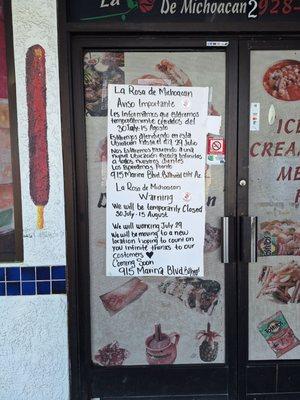 La
De Michoacan 2928-
La Rosa de Michoacan
Aviso Importante
Les Informamos que Estaremos
temporalmente cerrados del
30 July-15 Agosto
Estaremos atendiendo en esta
Ubicación hasta el dia 29 Julio
Nos Estamos moviendo a una
nueva Ubicación Gracias
a todos nuestros clientes
Los Esperamos Pronto
915 Marina Blvd, Bullhead city Az.
La Rosa de Michoacan
Warning
We will be temporarily closed
30 July - 15 August
We will working until July 29
We will be moving to a new
location hoping to count on you
infinite thanks to our
customers
Coming Soon
915 Marina Blvd, Bullhead city
ICE
CREAM
MEX